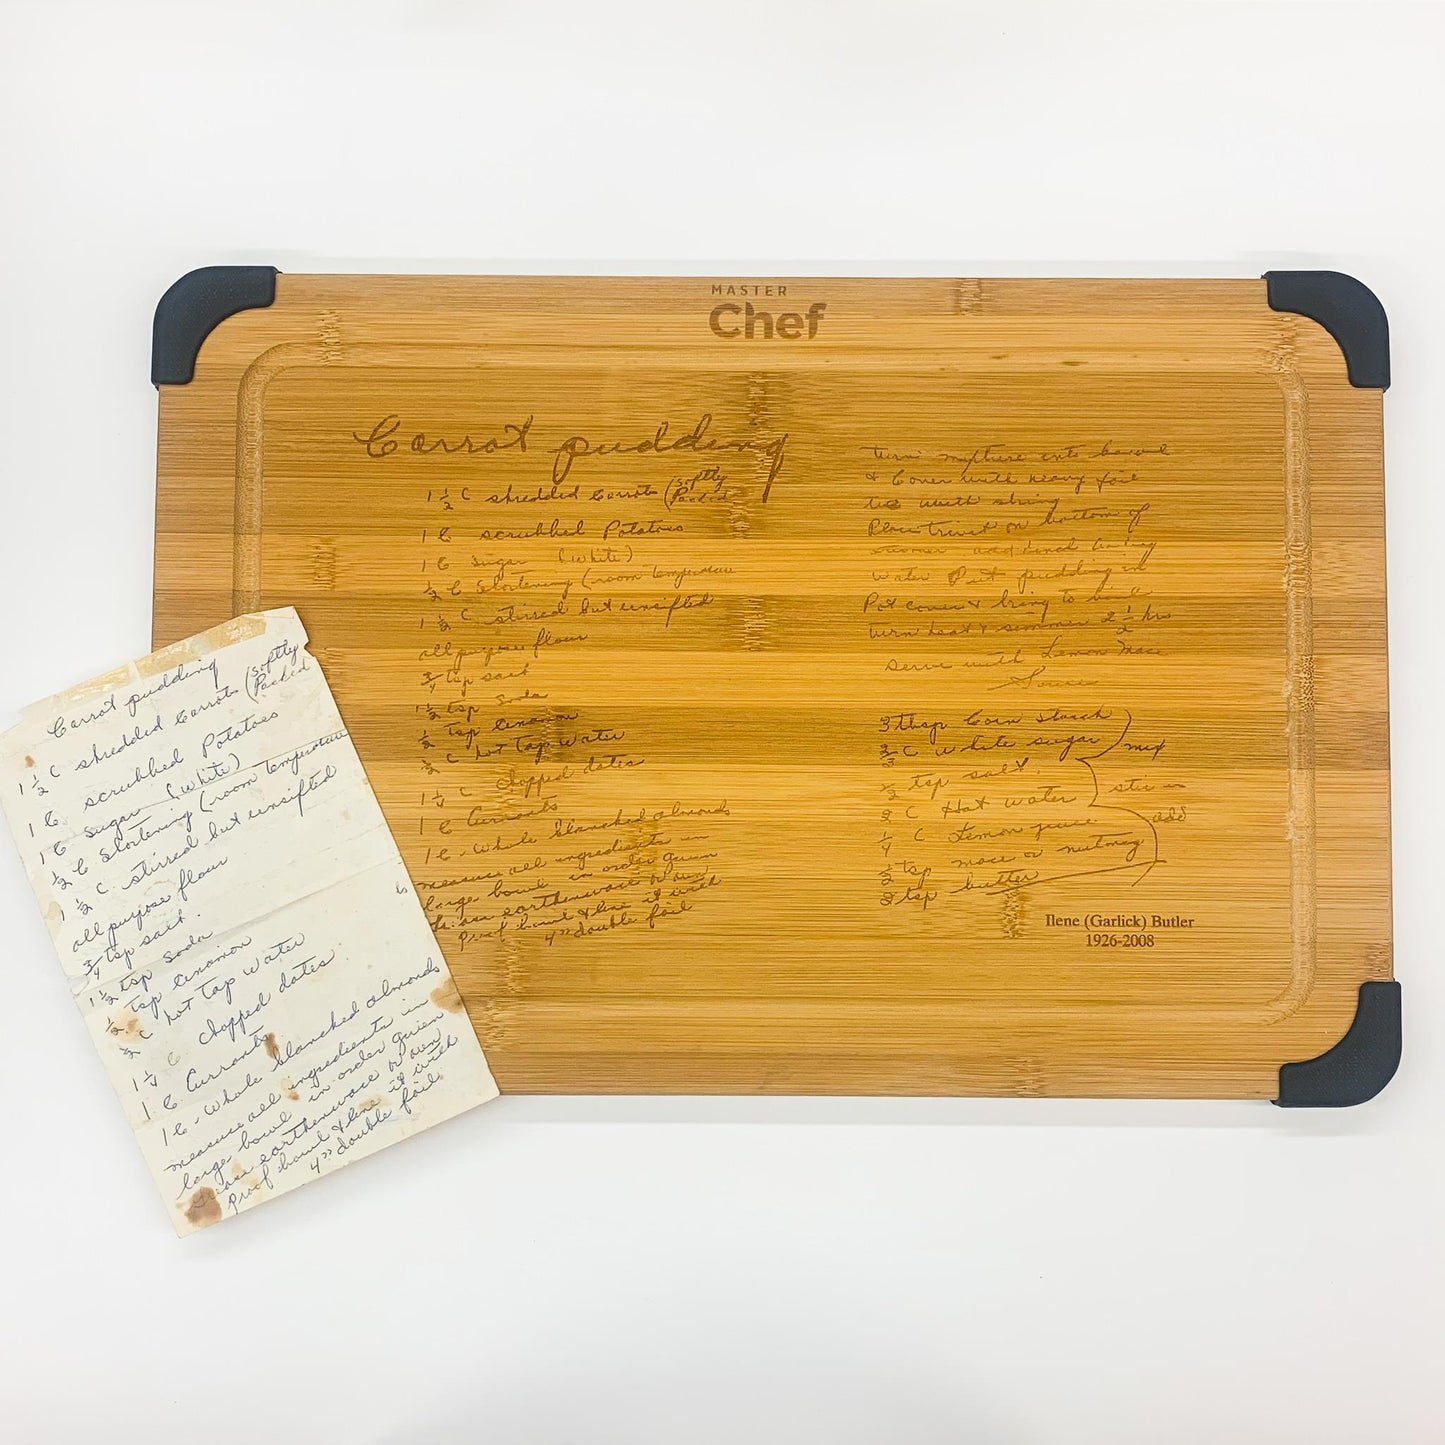 MASTER
Chef
Carrot pudding
1 1/2 C shredded Carrots (softly
Packed
1 C scrubbed Potatoes
1 C Sugar (White)
1/2 C Shortening (room temperature
1 1/2 C. stirred but unsifted
all purpose flour
3/4 tsp salt
1 1/2 tsp Soda
1/2 tsp Cinamon
C hot Tap Water
1 1/4 C chopped dates
1 C Currants
1 C. Whole blanched almonds
measure all ingredients in
large bowl in order given
earthenware or oven
Proof bowl & line it with
4" double foil
turn mixture into bowl
& Cover with heavy foil
tie with string
Place trivet on bottom of
steamer add boiling
water Put pudding in
Pot cover & bring to boil
turn heat & simmer 2 1/2 hrs
serve with Lemon Mace
Souce
3 tbsp Corn Starch
C White sugar
mix
1/2 tsp salt.
2 C Hot water
stir in
1/4 C Lemon juice
add
1/2 tsp mace or nutmeg
tsp butter
Ilene (Garlick) Butler
1926-2008
Carrot pudding
1 1/2 C shredded Carrots (softly
Packed
1 C scrubbed Potatoes
1 C Sugar (White)
1/2 C Shortening (room temperature
1 1/2 C. stirred but unsifted
all purpose flour
3/4 tsp salt.
1 1/2 tsp Soda
1/2 tsp Cinamon
C hot Tap Water
1 1/4 C chopped dates.
1 C Currants
1 C. Whole blanched almonds
measure all ingredients in
large bowl in order given
earthenware or oven
Proof bowl & line it with
4" double foil